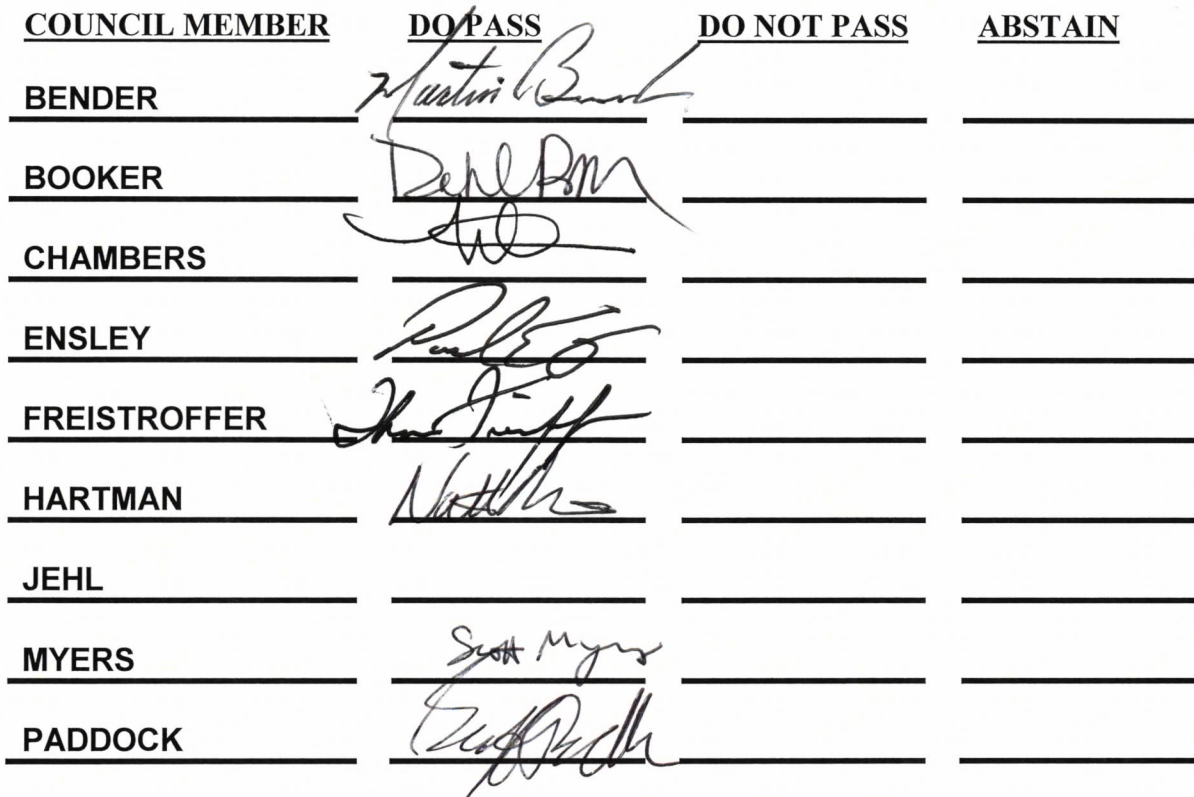 COUNCIL MEMBER DO PASS DO NOT PASS ABSTAIN
BENDER Martin Bender
BOOKER
CHAMBERS
ENSLEY Paul E
FREISTROFFER
HARTMAN
JEHL
MYERS Scott Myers
PADDOCK